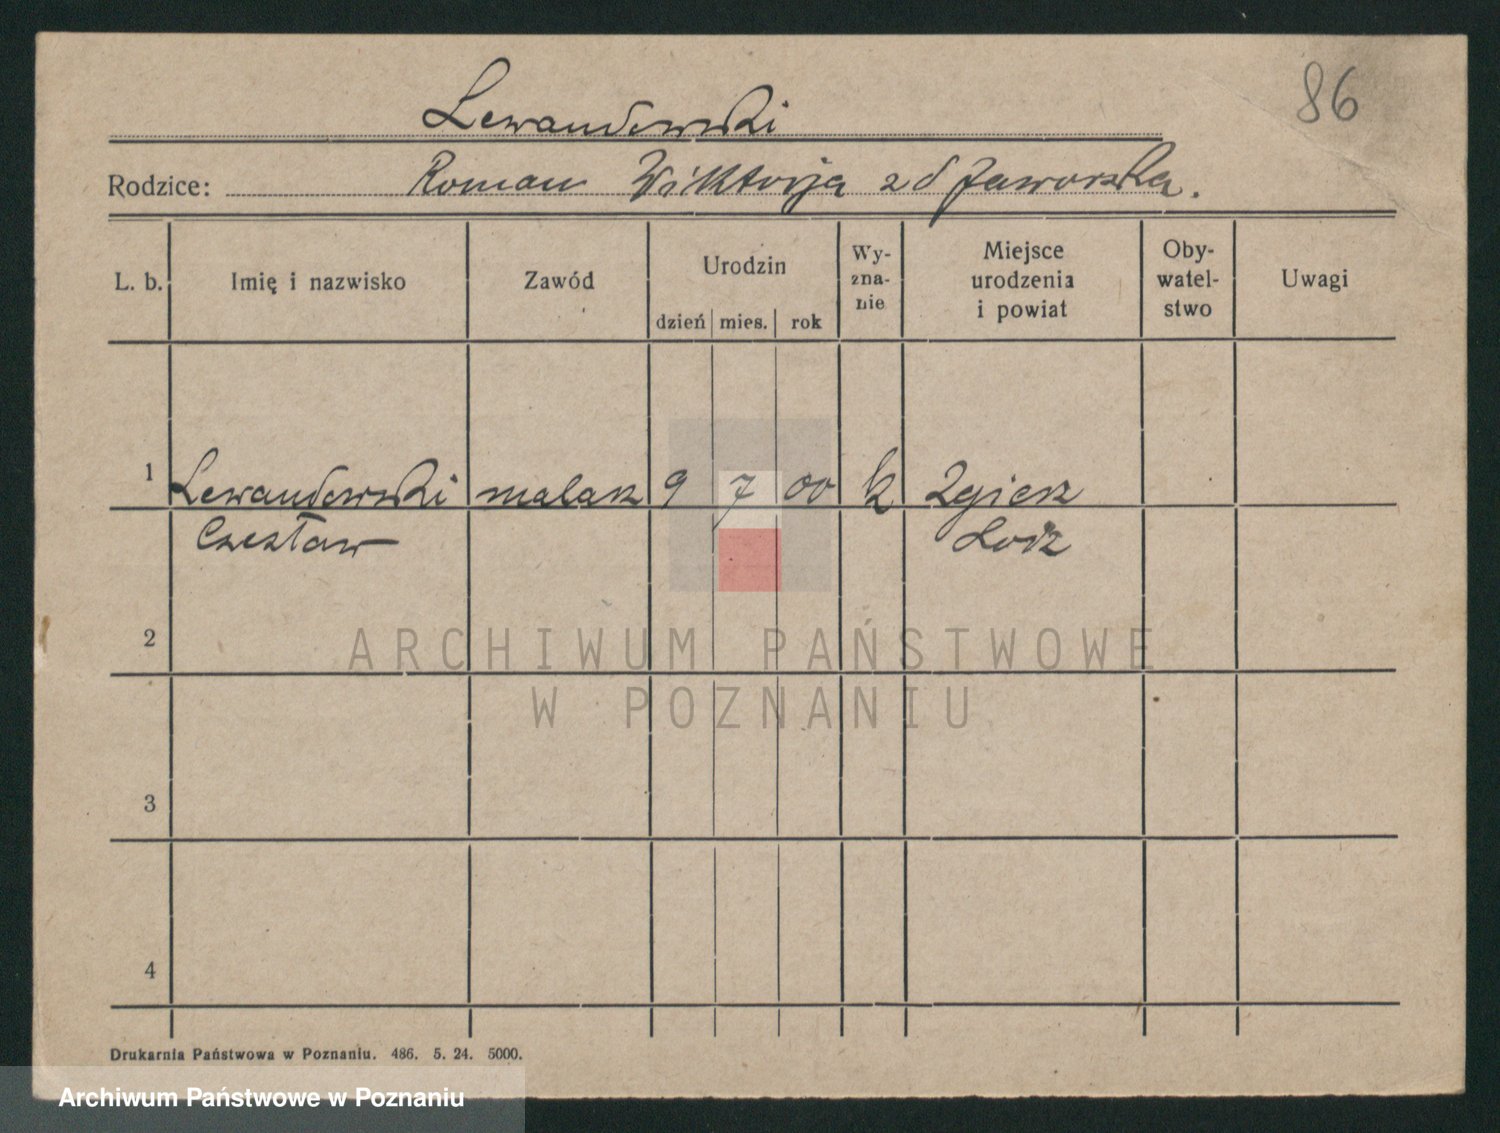 86
Lewandowski
Rodzice: Roman Wiktorja z d Jaworska.
L. b. Imię i nazwisko Zawód Urodzin dzień mies. rok Wy-zna-nie Miejsce urodzenia i powiat Oby-watel-stwo Uwagi
1 Lewandowski malarz 9 7 00 k Zgierz
Czesław Łodz
2
ARCHIWUM PAŃSTWOWE
W POZNANIU
3
4
Drukarnia Państwowa w Poznaniu. 486. 5. 24. 5000.
Archiwum Państwowe w Poznaniu